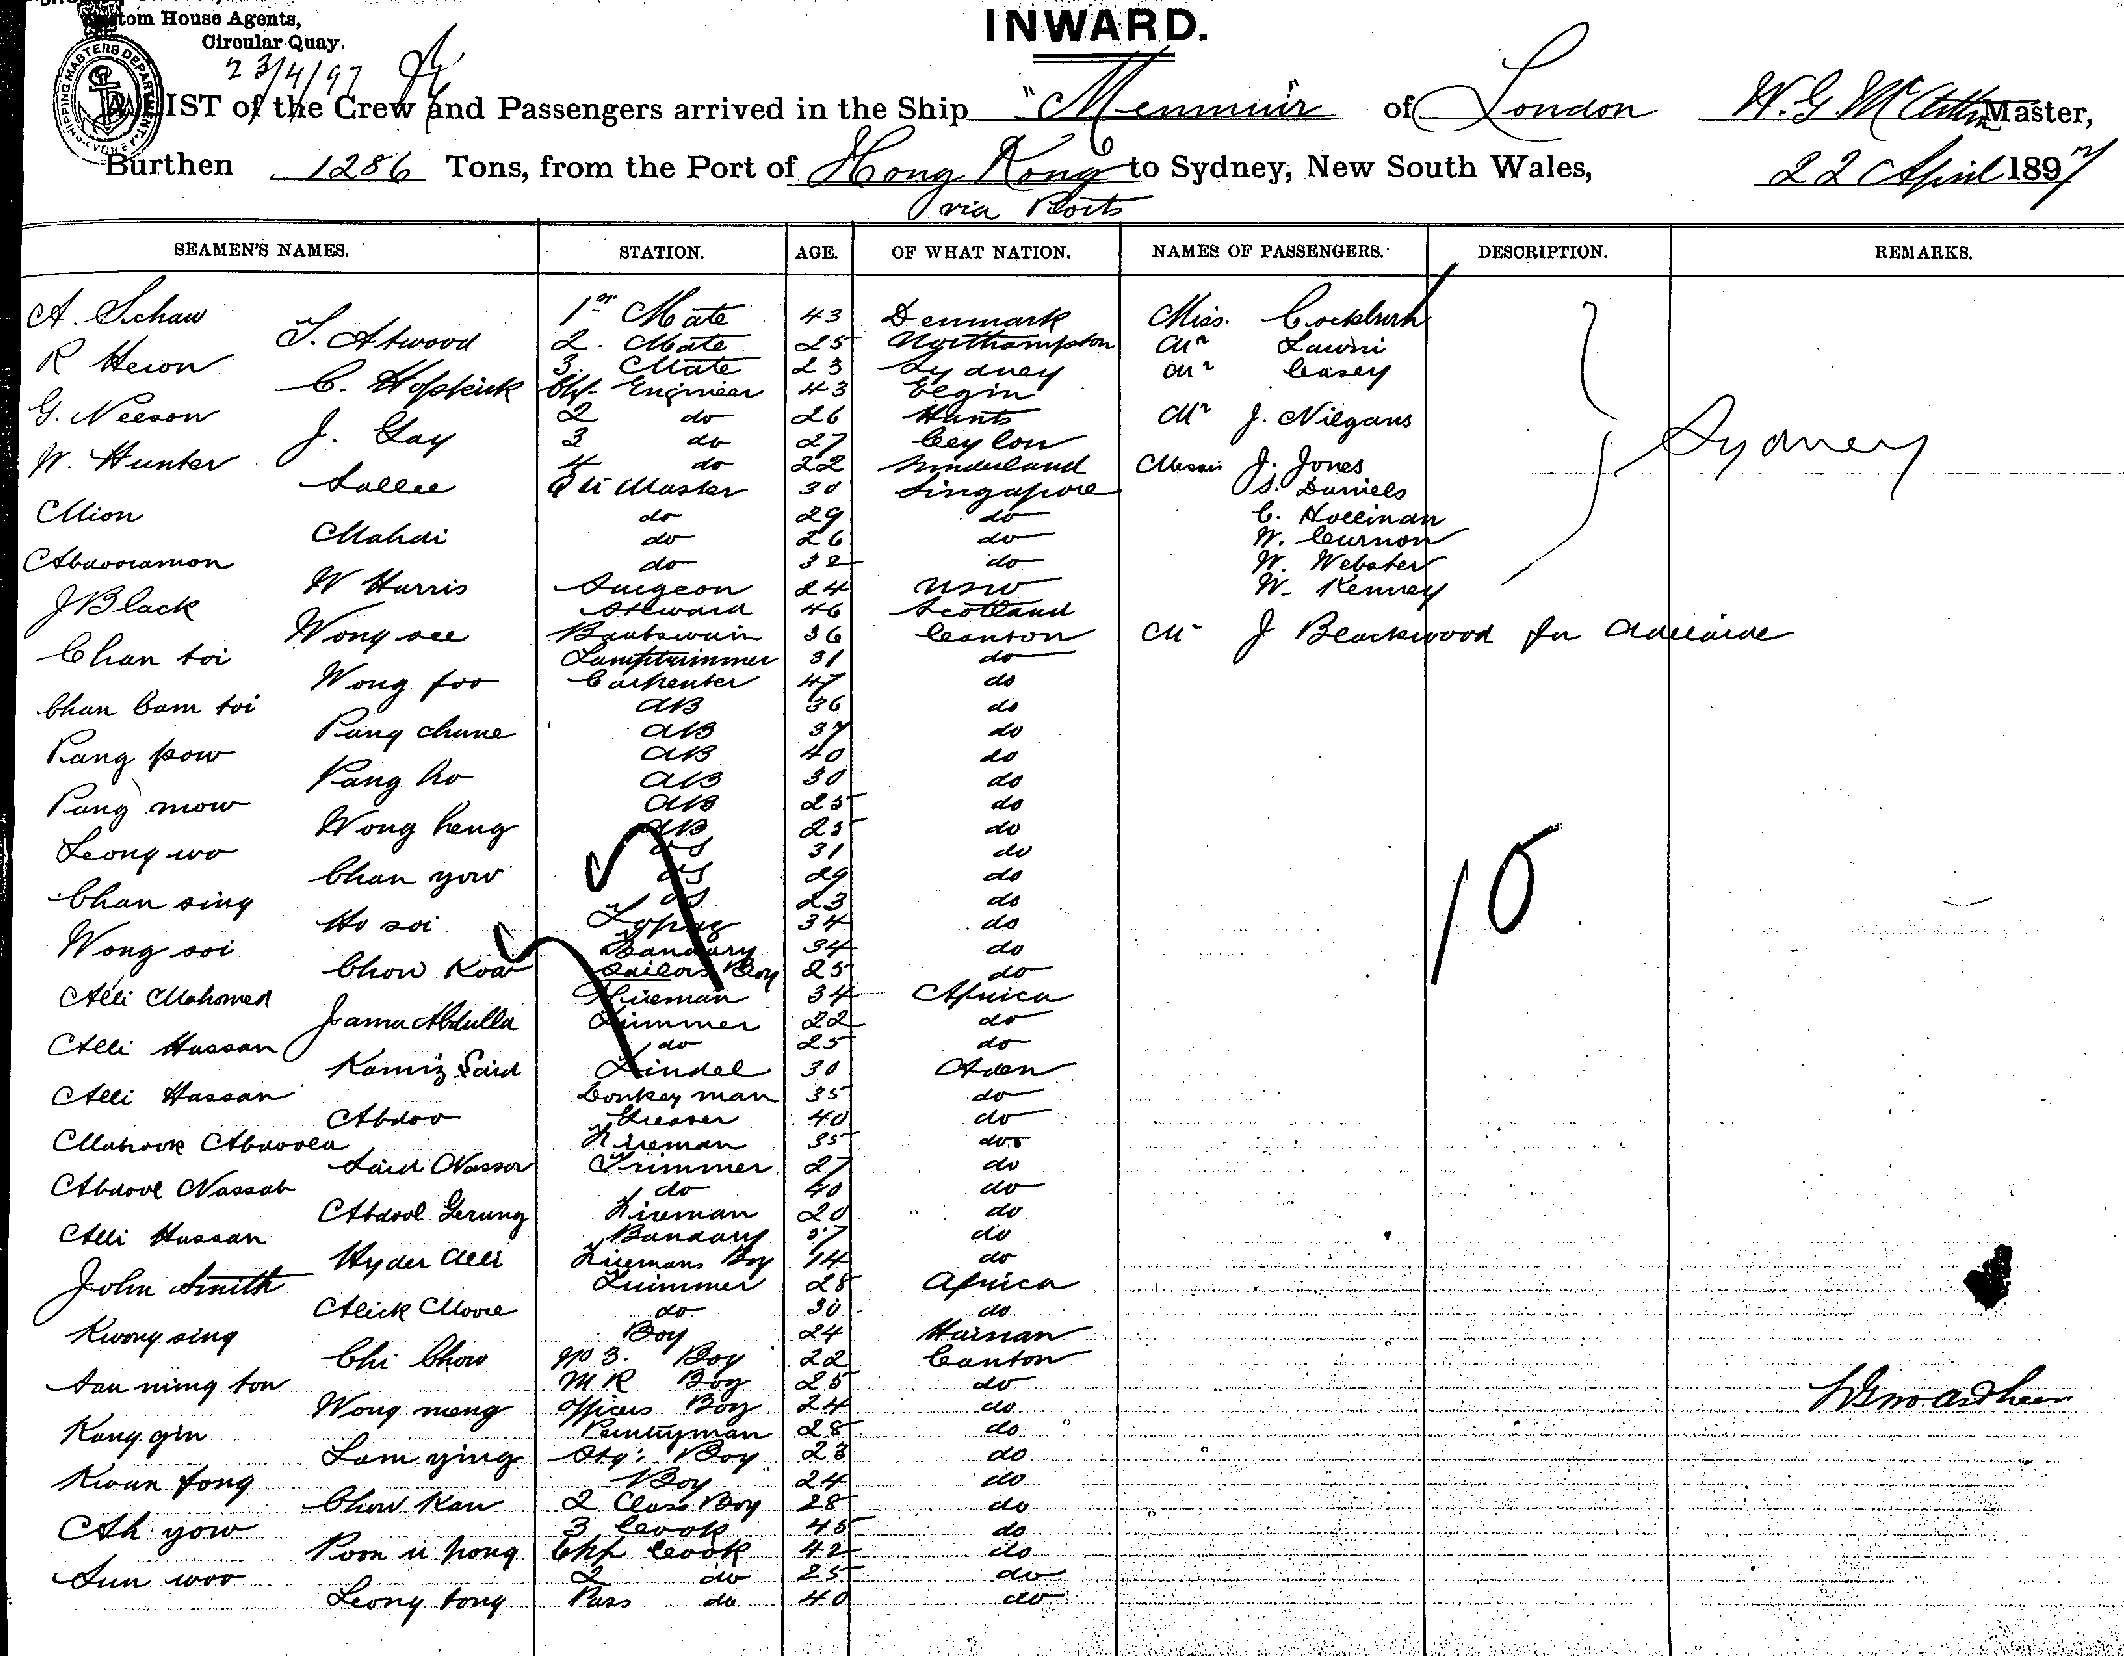 Custom House Agents,
Circular Quay.
23/4/97
SHIPPING MASTERS DEPARTMENT SYDNEY
INWARD.
A LIST of the Crew and Passengers arrived in the Ship "Menmuir of London W. G McArthur Master,
Burthen 1286 Tons, from the Port of Hong Kong to Sydney, New South Wales, 22 April 1897
via Ports
SEAMEN'S NAMES. STATION. AGE. OF WHAT NATION. NAMES OF PASSENGERS. DESCRIPTION. REMARKS.
A. Schaw 1st Mate 43 Denmark Miss. Cockburn
T. Atwood 2. Mate 25 Northampton Mr Lawri
R Heron 3. Mate 23 Sydney Mr Casey
C. Hopkirk Chf. Engineer 43 Elgin
G. Neeson 2 do 26 Hants Mr J. Nilgans
J. Gay 3 do 27 Ceylon
W. Hunter 4 do 22 Sunderland Messrs J. Jones
Sallee Qr Master 30 Singapore S. Daniels
Mion do 29 do C. Hollinan
Mahdi do 26 do W. Curnon
Abdooramon do 32 do W. Webster
W Harris Surgeon 24 NSW W. Kenney
Sydney
J Black Steward 46 Scotland
Wong see Boatswain 36 Canton Mr J Blackwood for Adelaide
Chan toi Lamptrimmer 31 do
Wong foo Carpenter 47 do
Chan Cam toi AB 36 do
Pang chune AB 37 do
Pang pow AB 40 do
Pang ho AB 30 do
Pang mow AB 25 do
Wong heng AB 25 do
Leong wo OS 31 do
Chan yow OS 29 do
Chan sing OS 23 do
Ho soi Topaz 34 do
Wong soi Bandary 34 do
Chow Kow Sailors Boy 25 do
10
Alli Mahomed Fireman 34 Africa
Jama Abdulla Trimmer 22 do
Alli Hassan do 25 do
Kamiz Said Tindel 30 Aden
Alli Hassan Donkey man 35 do
Abdoo Greaser 40 do
Mabrook Abdoola Fireman 35 do
Said Nasser Trimmer 27 do
Abdool Nassab do 40 do
Abdool Gerung Fireman 20 do
Alli Hassan Bandary 37 do
Hyder Alli Firemans Boy 14 do
John Smith Trimmer 28 Africa
Alick Moore do 30 do
Kwong sing Boy 24 Hainan
Chi Chow No 3. Boy 22 Canton
Sau ming ton M R Boy 25 do
Wong meng Officers Boy 24 do
Kong gin Pantryman 28 do
Lam ying Boy 23 do
Kwan fong Boy 24 do
Chow Kau 2 Class Boy 28 do
Ah yow 3 Cook 45 do
Poon u pong Chf Cook 42 do
Sun woo 2 do 25 do
Leong tong Pass do 40 do